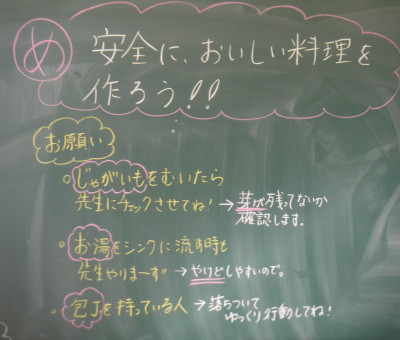 め 安全に、おいしい料理を
作ろう!!
お願い
○ じゃがいもをむいたら
先生にチェックさせてね! → 芽が残ってないか
確認します。
○ お湯をシンクに流す時も
先生やりまーす → やけどしやすいので。
○ 包丁を持っている人 → 落ちついて
ゆっくり行動してね!